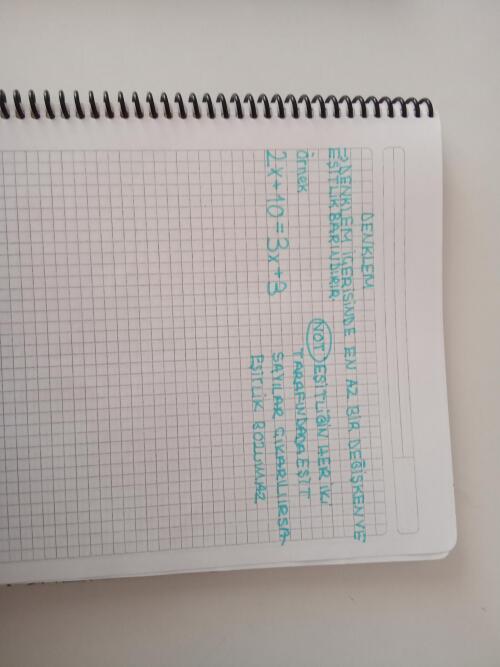 DENKLEM
⇒DENKLEM İÇERİSİNDE EN AZ BİR DEĞİŞKEN VE
EŞİTLİK BARINDIRIR.
Örnek
2x+10=3x+3
NOT EŞİTLİĞİN HER İKİ
TARAFINDADA EŞİT
SAYILAR ÇIKARILIRSA
EŞİTLİK BOZULMAZ